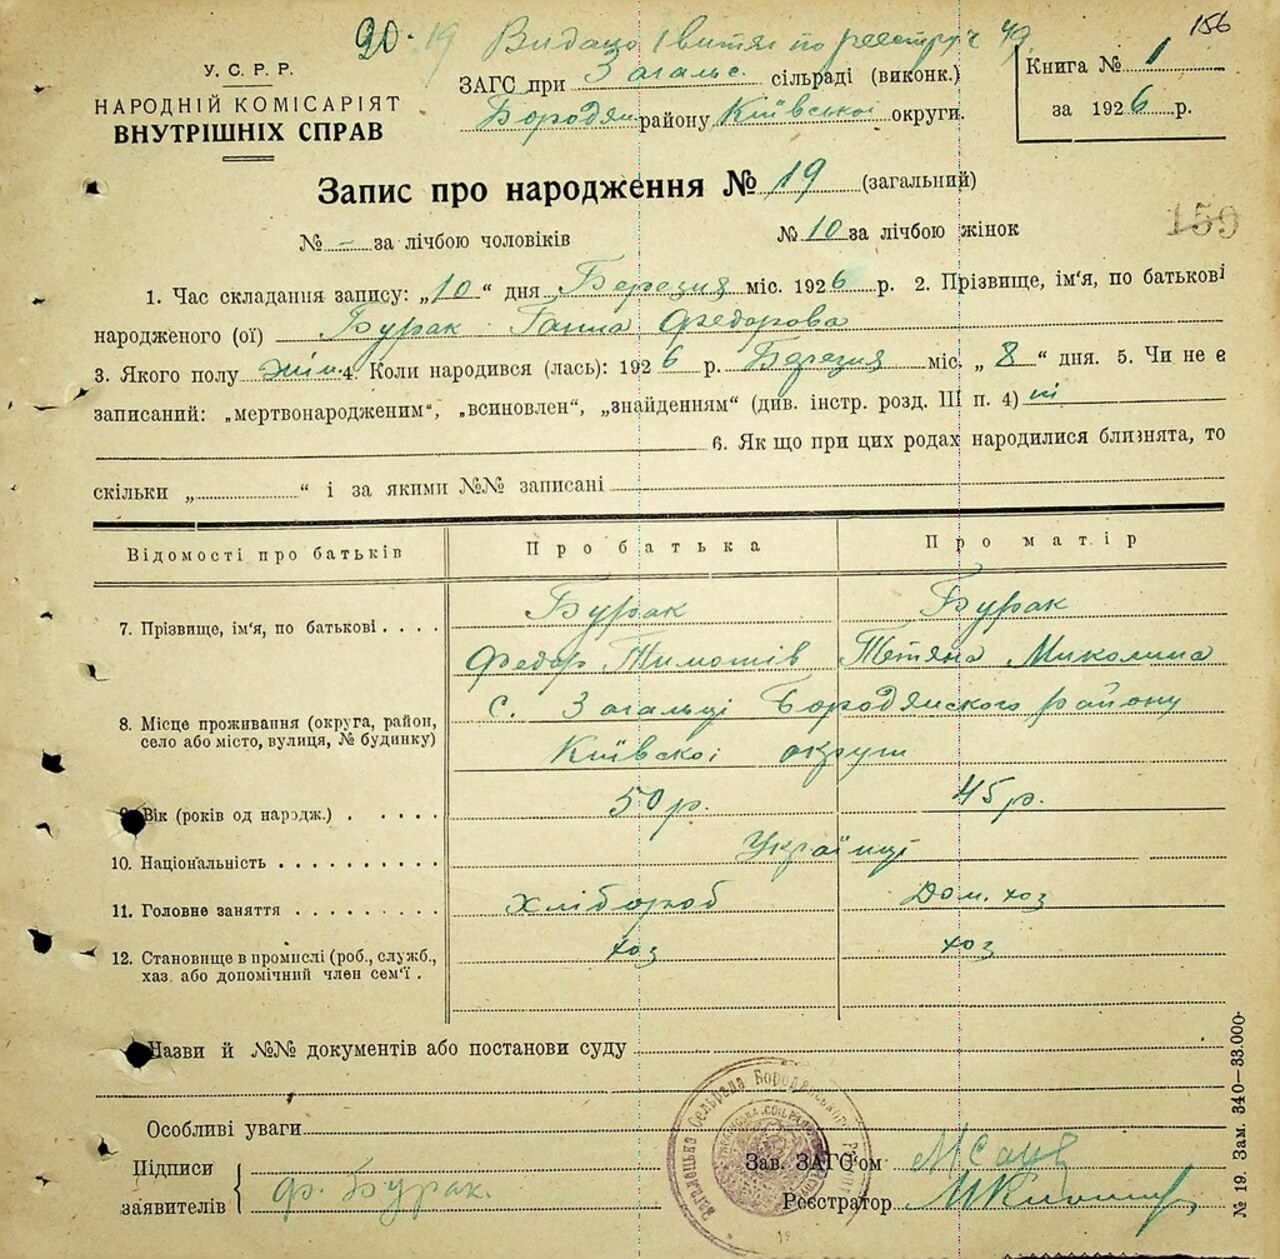 156
20. 19 Видано 1 витяг по реестру 49
У. С. Р. Р.
НАРОДНІЙ КОМІСАРІЯТ
ВНУТРІШНІХ СПРАВ
ЗАГС при Загальс. сільраді (виконк.)
Бородян. району Київської округи.
Книга № 1
за 1926 р.
Запис про народження № 19 (загальний)
159
№ - за лічбою чоловіків № 10 за лічбою жінок
1. Час складання запису: „10“ дня Березня міс. 1926 р. 2. Прізвище, ім‘я, по батькові
народженого (ої) Бурак Ганна Федорова
3. Якого полу жін. 4. Коли народився (лась): 1926 р. Березня міс. „8“ дня. 5. Чи не є
записаний: „мертвонародженим“, „всиновлен“, „знайденням“ (див. інстр. розд. III п. 4) ні
6. Як що при цих родах народилися близнята, то
скільки „ “ і за якими №№ записані
Відомості про батьків Про батька Про матір
7. Прізвище, ім‘я, по батькові . . . . Бурак Бурак
Федор Тимотів Тетяна Миколина
8. Місце проживання (округа, район, село або місто, вулиця, № будинку) с. Загальці Бородянского району
Київскої округи
9. Вік (років од народж.) . . . . . 50 р. 45 р.
10. Національність . . . . . . . . . . Українці
11. Головне заняття . . . . . . . . . Хлібороб Дом. хоз
12. Становище в промислі (роб., служб., хоз хоз
хаз. або допомічний член сем‘ї .
Назви й №№ документів або постанови суду
Особливі уваги
Підписи
заявителів Ф. Бурак.
Зав. ЗАГС‘ом
Реєстратор
№ 19. Зам. 340—33.000·